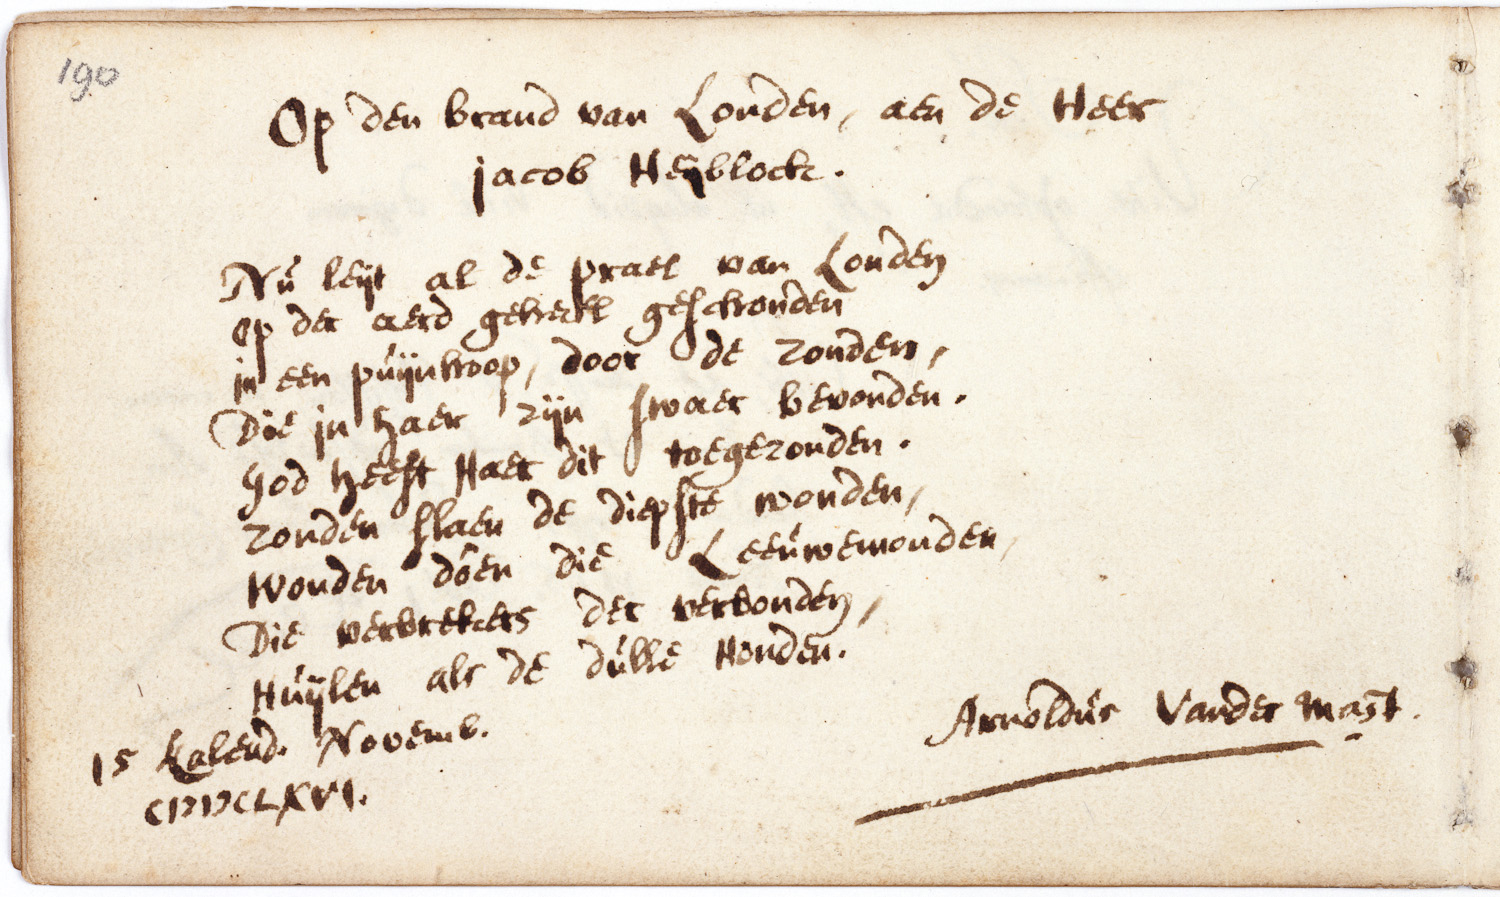 190
Op den brand van Londen, aen de Heer
jacob Heÿblock.
Nú leijt al de prael van Londen
Op der aerd geheell geschonden
in een púijnhoop, door de zonden,
Die in haer zijn swaer bevonden.
God heeft Haer dit toegezonden.
zonden slaen de diepste wonden,
Wonden dôen die Leeúwemonden,
Die verbrekers der verbonden,
Húijlen als de dúlle Honden.
15 Kalend. Novemb.
CIƆIƆCLXVI.
Arnoldús Vander Mast.